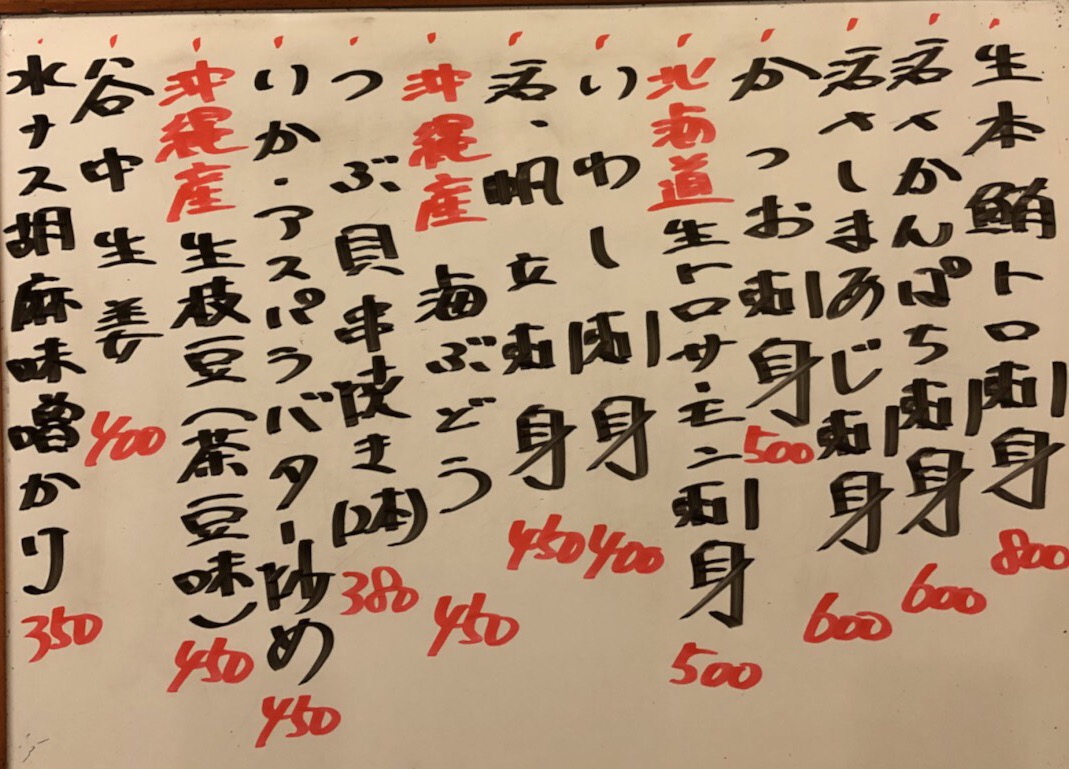 生本鮪トロ刺身 800
活〆かんぱち刺身 600
活〆しまあじ刺身 600
かつお刺身 500
北海道生トロサーモン刺身 500
いわし刺身 400
活・帆立刺身 450
沖縄産海ぶどう 450
つぶ貝串焼き(2本) 380
いか・アスパラバター炒め 450
沖縄産生枝豆(茶豆味) 450
谷中生姜 400
水ナス胡麻味噌かけ 350